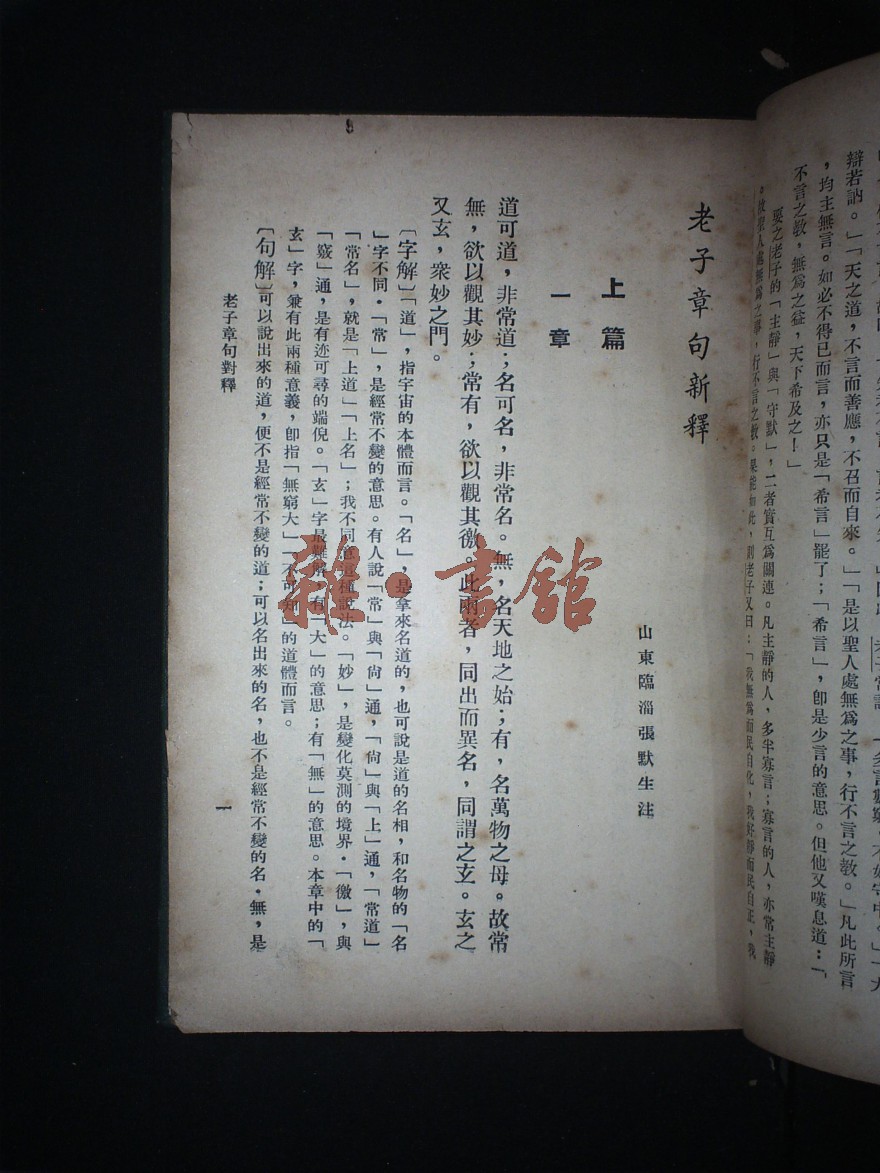 辯若訥。」「天之道，不言而善應，不召而自來。」「是以聖人處無爲之事，行不言之敎。」凡此所言
，均主無言。如必不得已而言，亦只是「希言」罷了；「希言」，卽是少言的意思。但他又嘆息道：「
不言之敎，無爲之益，天下希及之！」
要之老子的「主靜」與「守默」，二者實互爲關連。凡主靜的人，多半寡言；寡言的人，亦常主靜
。故聖人處無爲之事，行不言之敎。果能如此，則老子又曰：「我無爲而民自化，我好靜而民自正，我
老子章句新釋
山東臨淄張默生注
上篇
一章
道可道，非常道；名可名，非常名。無，名天地之始；有，名萬物之母。故常
無，欲以觀其妙；常有，欲以觀其徼。此兩者，同出而異名，同謂之玄。玄之
又玄，衆妙之門。
〔字解〕「道」，指宇宙的本體而言。「名」，是拿來名道的，也可說是道的名相，和名物的「名
」字不同・「常」，是經常不變的意思。有人說「常」與「尙」通，「尙」與「上」通，「常道」
「常名」，就是「上道」「上名」；我不同意這種說法。「妙」，是變化莫測的境界・「徼」，與
「竅」通，是有迹可尋的端倪。「玄」字最難解，有「大」的意思；有「無」的意思。本章中的「
玄」字，兼有此兩種意義，卽指「無窮大」「不可知」的道體而言。
〔句解〕可以說出來的道，便不是經常不變的道；可以名出來的名，也不是經常不變的名・無，是
老子章句對釋
一
雜・書館